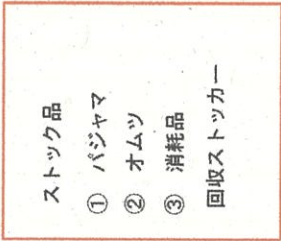 ストック品
① パジャマ
② オムツ
③ 消耗品
回収ストッカー